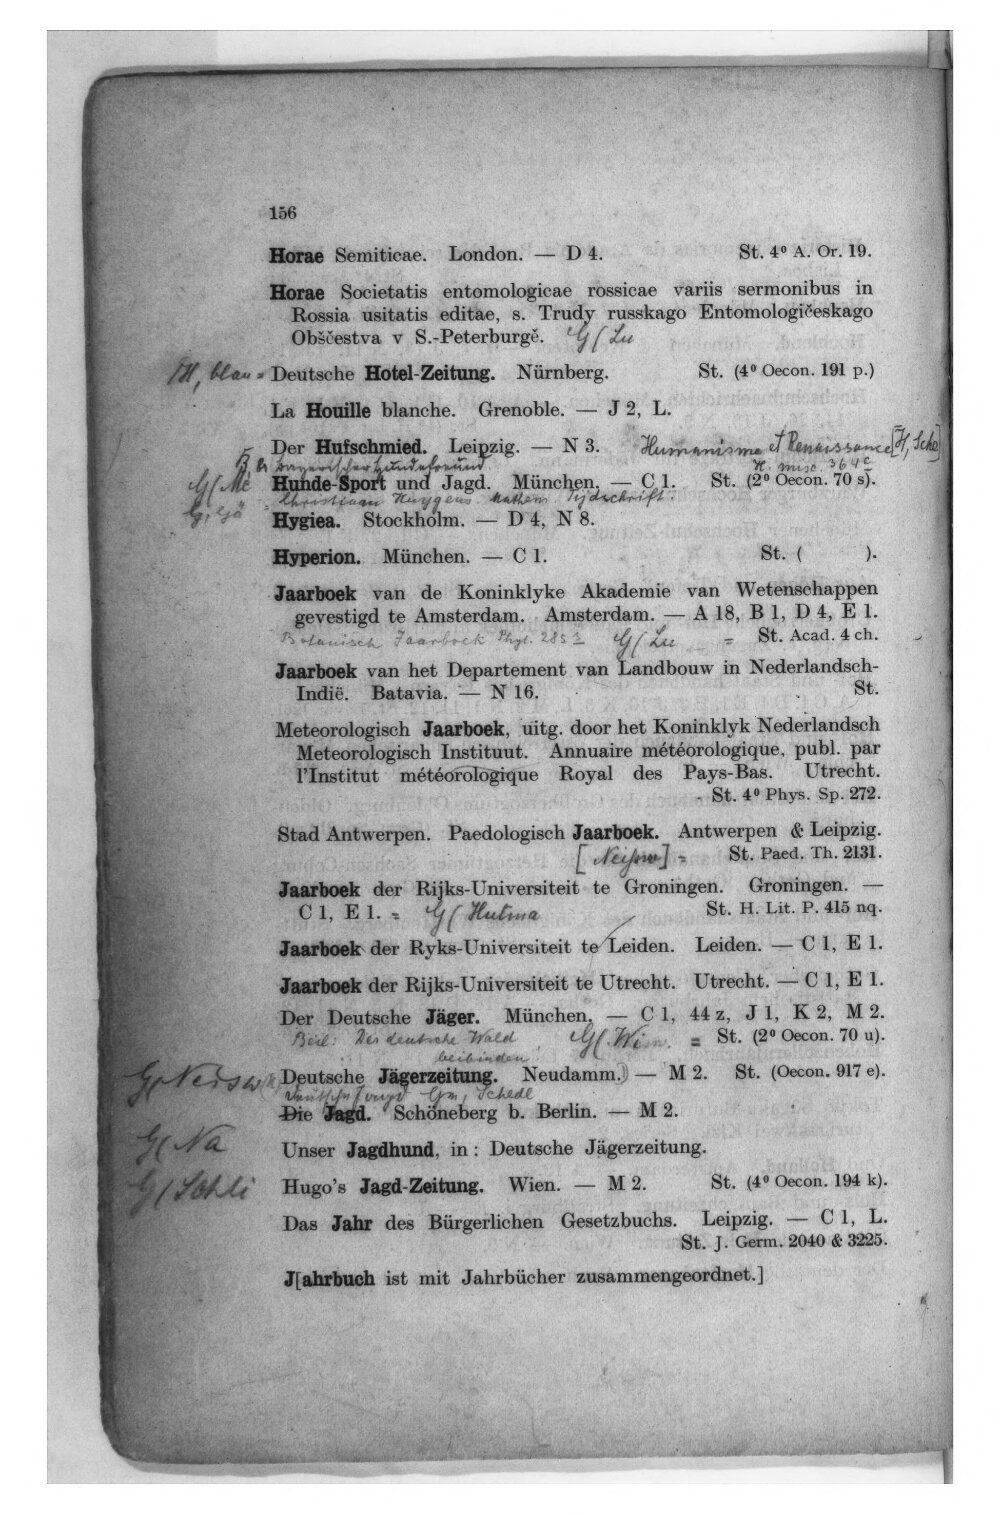 156
Horae Semiticae. London. — D 4. St. 4⁰ A. Or. 19.
Horae Societatis entomologicae rossicae variis sermonibus in
Rossia usitatis editae, s. Trudy russkago Entomologičeskago
Obščestva v S.-Peterburgě. G( Lu
H, blau = Deutsche Hotel-Zeitung. Nürnberg. St. (4⁰ Oecon. 191 p.)
La Houille blanche. Grenoble. — J 2, L.
Der Hufschmied. Leipzig. — N 3. Humanisme et Renaissance [H, Sche]
bayerischer Hundefreund H. misc. 364 c
G( Me Hunde-Sport und Jagd. München. — C 1. St. (2⁰ Oecon. 70 s).
Christiaan Huygens. Mathem. Tijdschrift
Hygiea. Stockholm. — D 4, N 8.
Hyperion. München. — C 1. St. ( ).
Jaarboek van de Koninklyke Akademie van Wetenschappen
gevestigd te Amsterdam. Amsterdam. — A 18, B 1, D 4, E 1.
Botanisch Jaarboek Phyt. 285 G( Lu = St. Acad. 4 ch.
Jaarboek van het Departement van Landbouw in Nederlandsch-
Indië. Batavia. — N 16. St.
Meteorologisch Jaarboek, uitg. door het Koninklyk Nederlandsch
Meteorologisch Instituut. Annuaire météorologique, publ. par
l'Institut météorologique Royal des Pays-Bas. Utrecht.
St. 4⁰ Phys. Sp. 272.
Stad Antwerpen. Paedologisch Jaarboek. Antwerpen & Leipzig.
St. Paed. Th. 2131.
Jaarboek der Rijks-Universiteit te Groningen. Groningen. —
C 1, E 1. = G( Hutma St. H. Lit. P. 415 nq.
Jaarboek der Ryks-Universiteit te Leiden. Leiden. — C 1, E 1.
Jaarboek der Rijks-Universiteit te Utrecht. Utrecht. — C 1, E 1.
Der Deutsche Jäger. München. — C 1, 44 z, J 1, K 2, M 2.
Beil: Der deutsche Wald G( Wim. = St. (2⁰ Oecon. 70 u).
beibinden
Deutsche Jägerzeitung. Neudamm. — M 2. St. (Oecon. 917 e).
Deutsche Jagd Gm, Schedl
Die Jagd. Schöneberg b. Berlin. — M 2.
G( Na Unser Jagdhund, in: Deutsche Jägerzeitung.
G( Schli Hugo's Jagd-Zeitung. Wien. — M 2. St. (4⁰ Oecon. 194 k).
Das Jahr des Bürgerlichen Gesetzbuchs. Leipzig. — C 1, L.
St. J. Germ. 2040 & 3225.
J[ahrbuch ist mit Jahrbücher zusammengeordnet.]